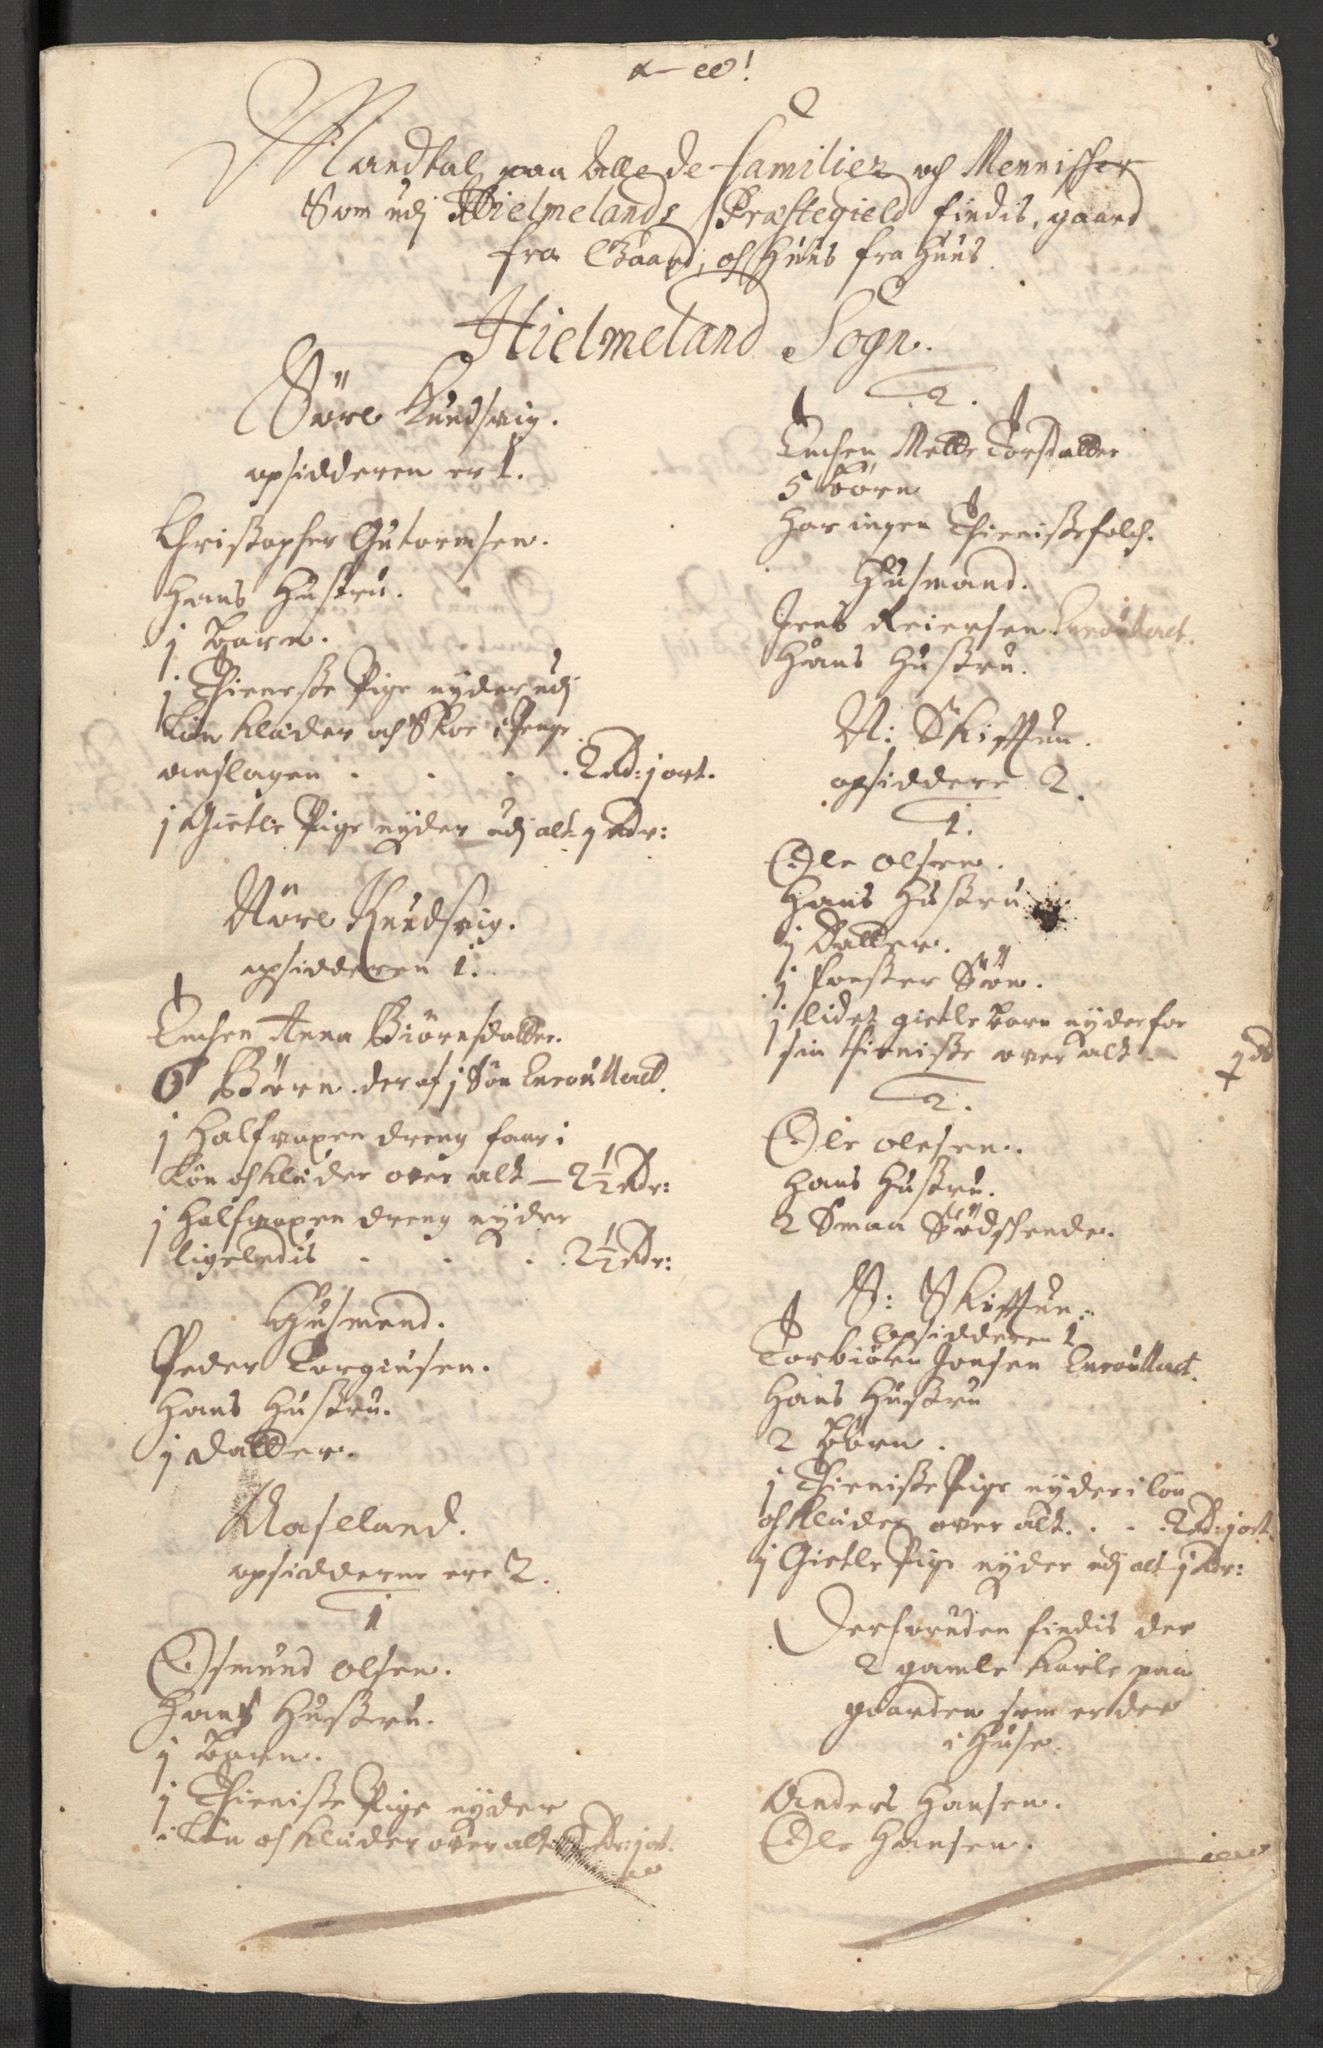 Mandtal paa Alle de familier och Mennischer
Som udj Hielmelands Præstegield findis, gaard
fra Gaard, och Huus fra Huus
Hielmeland Sogn.
Söre Knudsvig.
opsidderen er 1.
Christopher Gutormsen.
Hans Hustru.
j Barn.
j Thieneste Pige nyder udj
Lön klæder och Skoe i Penge
anslagen . . . . 2 Rd: j ort.
j Gietle Pige nyder udj alt j Rdr:
Nöre Knudsvig.
opsidderen 1.
Enchen Anna Biörnsdatter.
6 Börn deraf j Sön Enroulleret.
j Halfvoxen dreng faar i
Lön och klæder over alt — 2½ Rdr:
j Halfvoxen dreng nyder
ligeledis . . . 2½ Rdr:
Husmend.
Peder Torgiusen.
Hans Hustru.
j datter.
Maseland.
opsidderne ere 2.
1
Osmund Olsen.
Hans Hustru.
j Barn.
j Thieniste Pige nyder
i Lön och klæder over alt Rdr: j ort.
2.
Enchen Mette Torsdatter
5 Börn
Har ingen Thienistefolch.
Husmand.
Jens Reiersen Enroulleret.
Hans Hustru.
N: Skifftun.
opsiddere 2.
1.
Ole Olsen.
Hans Hustru
j Datter.
j Foster Sön.
j lidet gietle barn nyder for
sin thieniste over alt — j Rd
2.
Ole Olesen.
Hans Hustru.
2 Smaa Södschende.
S: Skifftun.
opsidderen 1
Torbiörn Jonsen Enroulleret.
Hans Hustru
2 Börn.
j Thieniste Pige nyder i lön
och klæder over alt . . 2 Rd: j ort.
j Gietle Pige nyder udj alt j Rdr:
Desforuden findis der
2 gamle karle paa
gaarden som er der
i Huse.
Anders Hansen.
Ole Hansen.